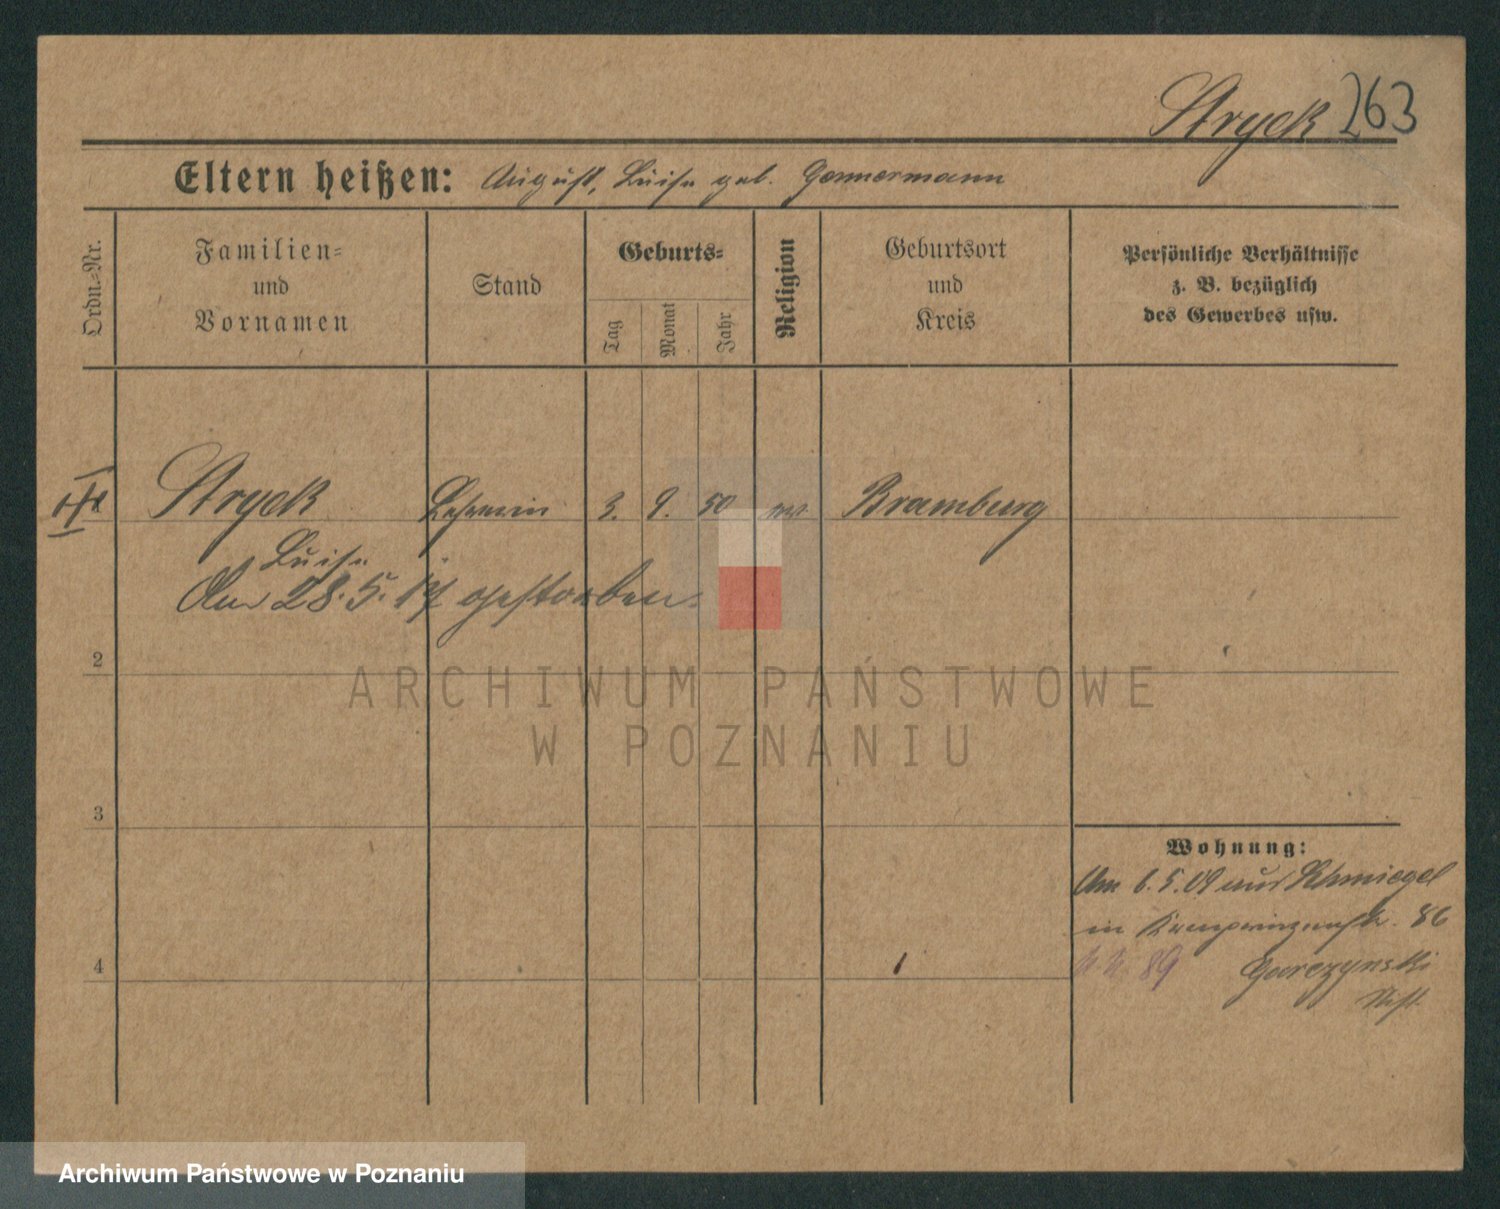 Stryck 263
Eltern heißen: August, Luise geb. Gonnermann
Ordn.-Nr.
Familien-
und
Vornamen
Stand
Geburts-
Tag
Monat
Jahr
Religion
Geburtsort
und
Kreis
Persönliche Verhältnisse
z. B. bezüglich
des Gewerbes usw.
Stryck Lehrerin 3. 9. 50 ev. Bramburg
Luise
Am 28. 5. 17 gestorben.
2
ARCHIWUM PAŃSTWOWE
W POZNANIU
3
Wohnung:
Am 6.5.09 aus Schmiegel
in Kronprinzenstr. 86
89 Gorczynski
Stift
4
Archiwum Państwowe w Poznaniu